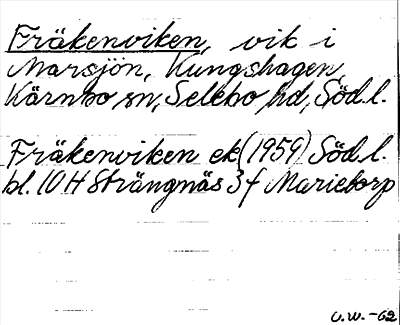 Fräkenviken, vik i
Marsjön, Kungshagen,
Kärnbo sn, Selebo hd, Söd.l.
Fräkenviken ek (1959) Söd.l.
bl. 10 H Strängnäs 3 f Marietorp
U.W.-62